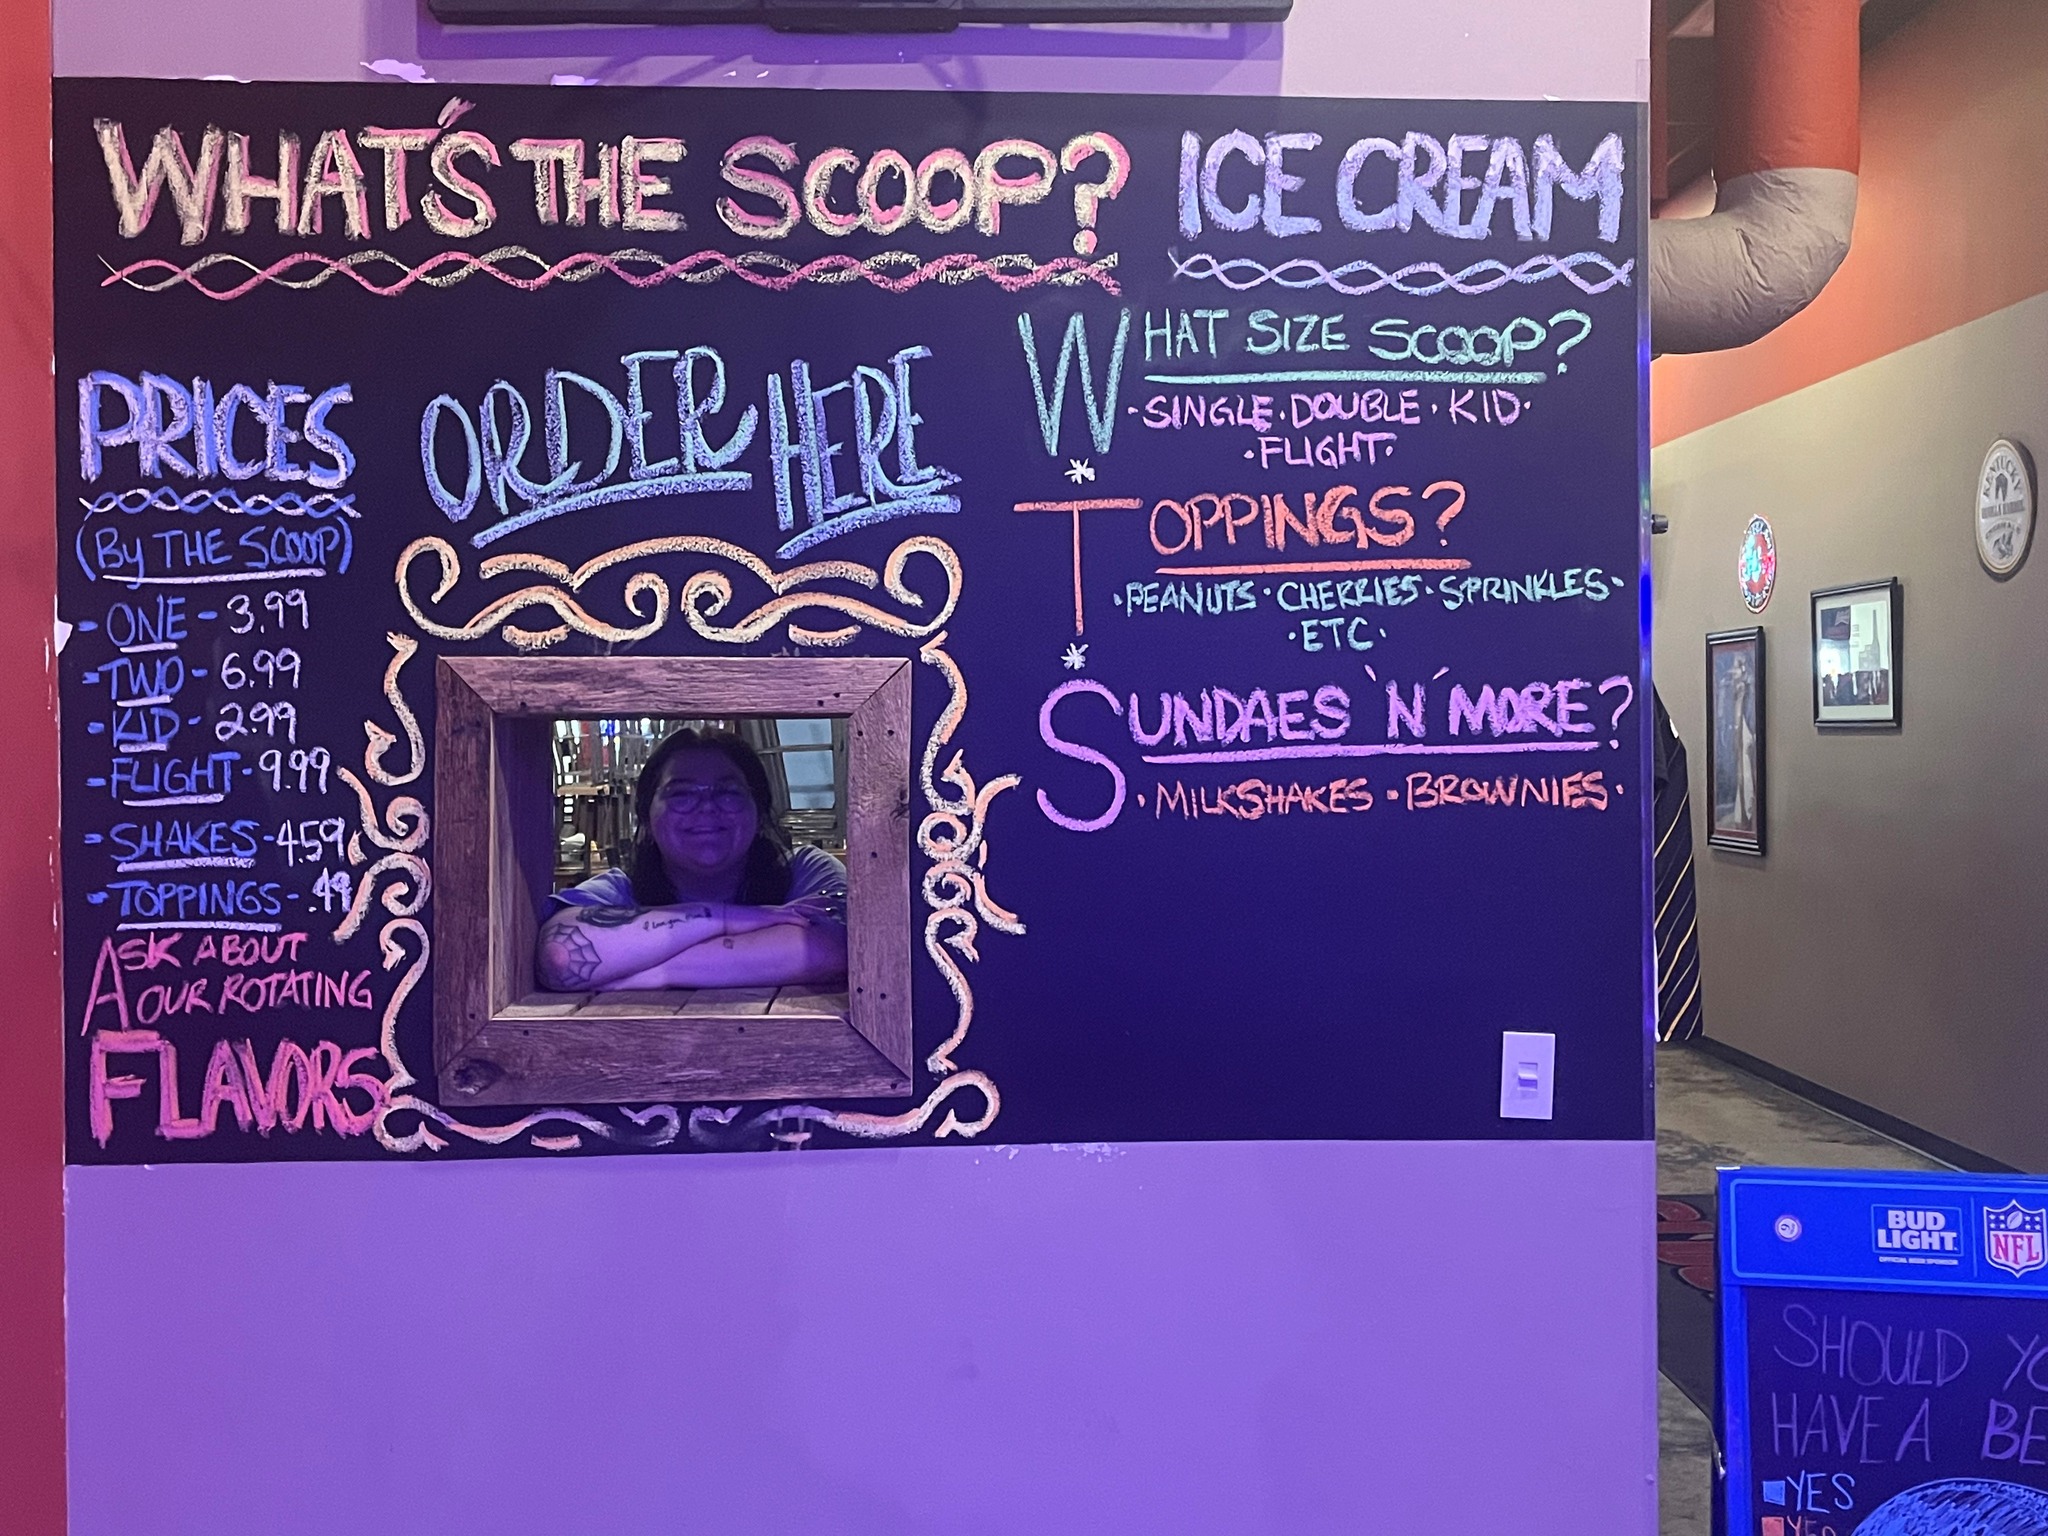 WHAT'S THE SCOOP?
ICE CREAM
PRICES
(BY THE SCOOP)
- ONE - 3.99
- TWO - 6.99
- KID - 2.99
- FLIGHT - 9.99
- SHAKES - 4.59
- TOPPINGS - .49
ASK ABOUT
OUR ROTATING
FLAVORS
ORDER HERE
WHAT SIZE SCOOP?
· SINGLE · DOUBLE · KID ·
· FLIGHT ·
*
TOPPINGS?
· PEANUTS · CHERRIES · SPRINKLES ·
· ETC ·
*
SUNDAES 'N' MORE?
· MILKSHAKES · BROWNIES ·
KENTUCKY
BUD
LIGHT
NFL
SHOULD YO
HAVE A BE
YES